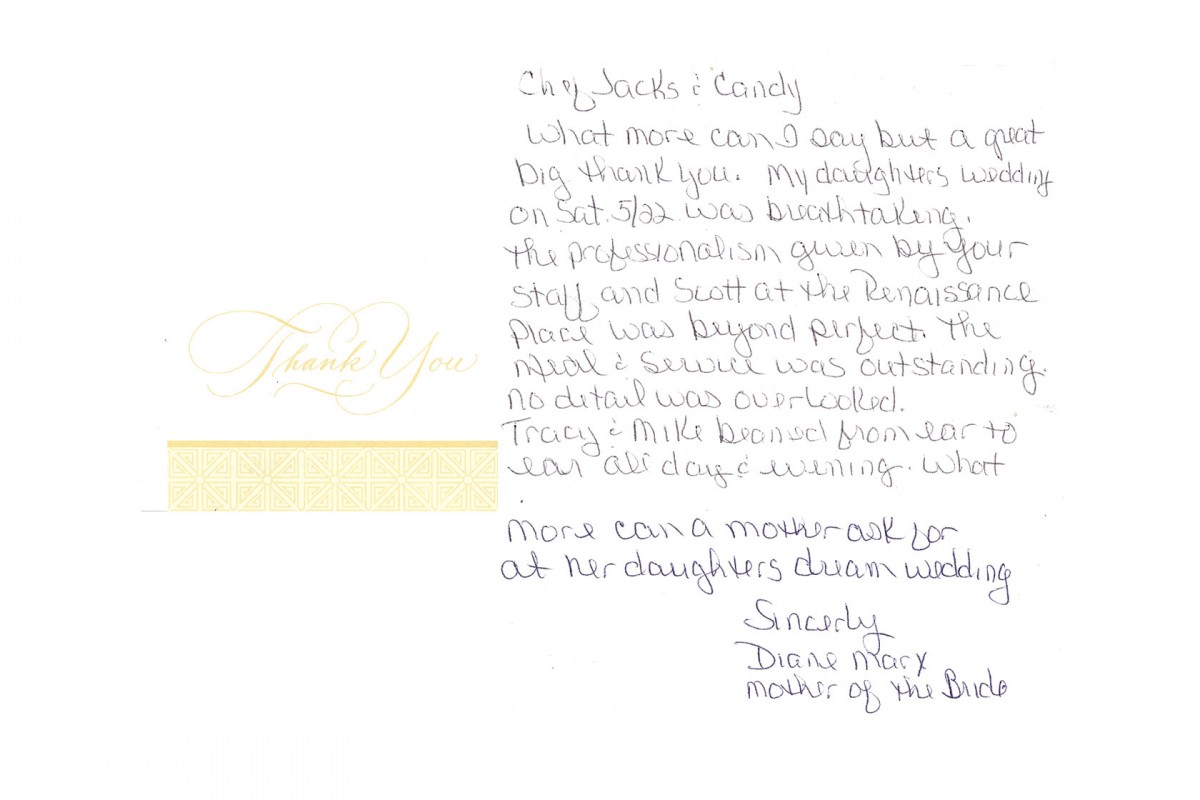 Thank You
Chef Jacks & Candy
What more can I say but a great
big thank you. My daughters wedding
on Sat. 5/22 was breathtaking.
the professionalism given by your
staff and Scott at the Renaissance
Place was beyond perfect. The
meal & service was outstanding.
no detail was overlooked.
Tracy & Mike beamed from ear to
ear all day & evening. What
more can a mother ask for
at her daughters dream wedding
Sincerly
Diane Marx
mother of the Bride